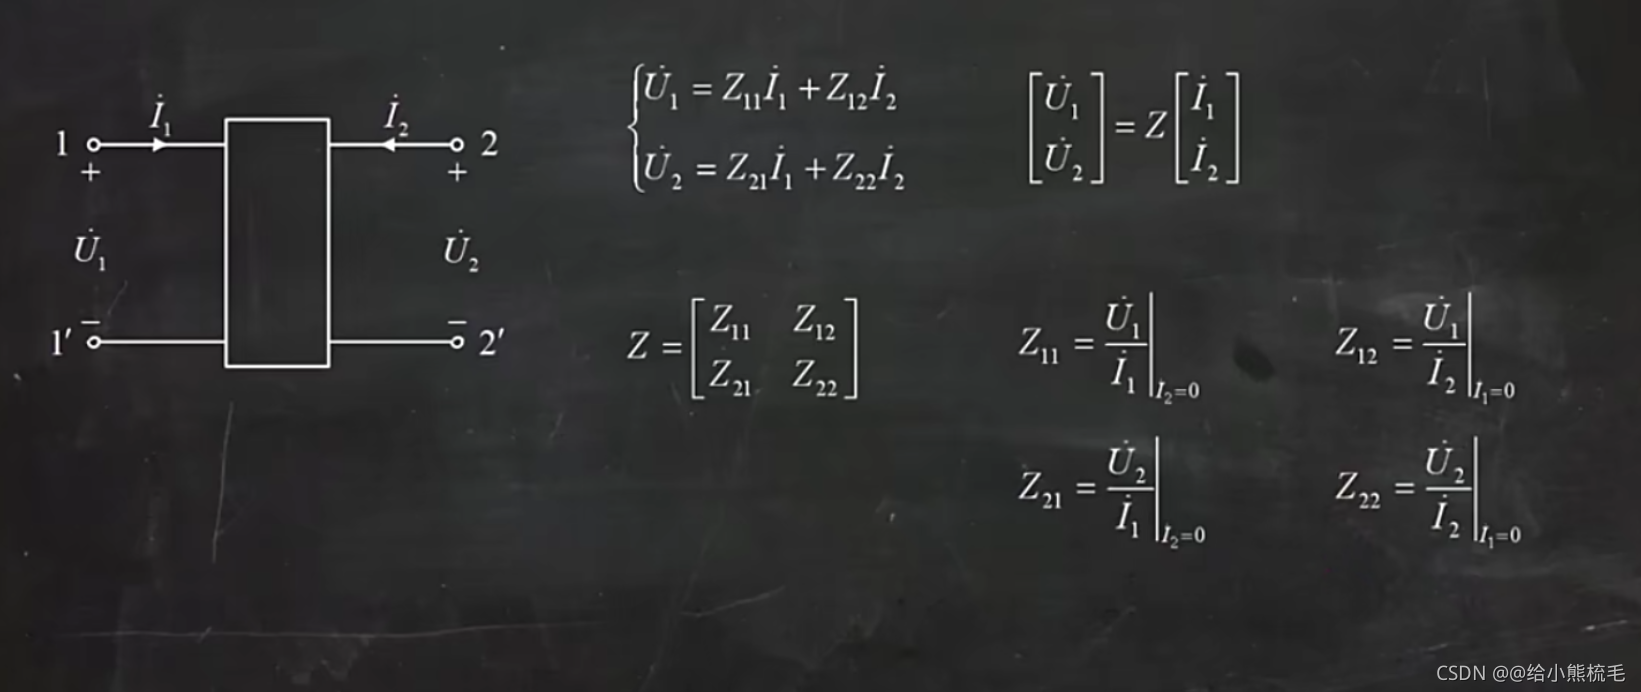 İ₁ İ₂
1 2
+ +
U̇₁ U̇₂
− −
1′ 2′
{ U̇₁ = Z₁₁İ₁ + Z₁₂İ₂
U̇₂ = Z₂₁İ₁ + Z₂₂İ₂
[U̇₁ U̇₂] = Z [İ₁ İ₂]
Z = [Z₁₁ Z₁₂
Z₂₁ Z₂₂]
Z₁₁ = U̇₁/İ₁ |I₂=0
Z₁₂ = U̇₁/İ₂ |I₁=0
Z₂₁ = U̇₂/İ₁ |I₂=0
Z₂₂ = U̇₂/İ₂ |I₁=0
CSDN @@给小熊梳毛